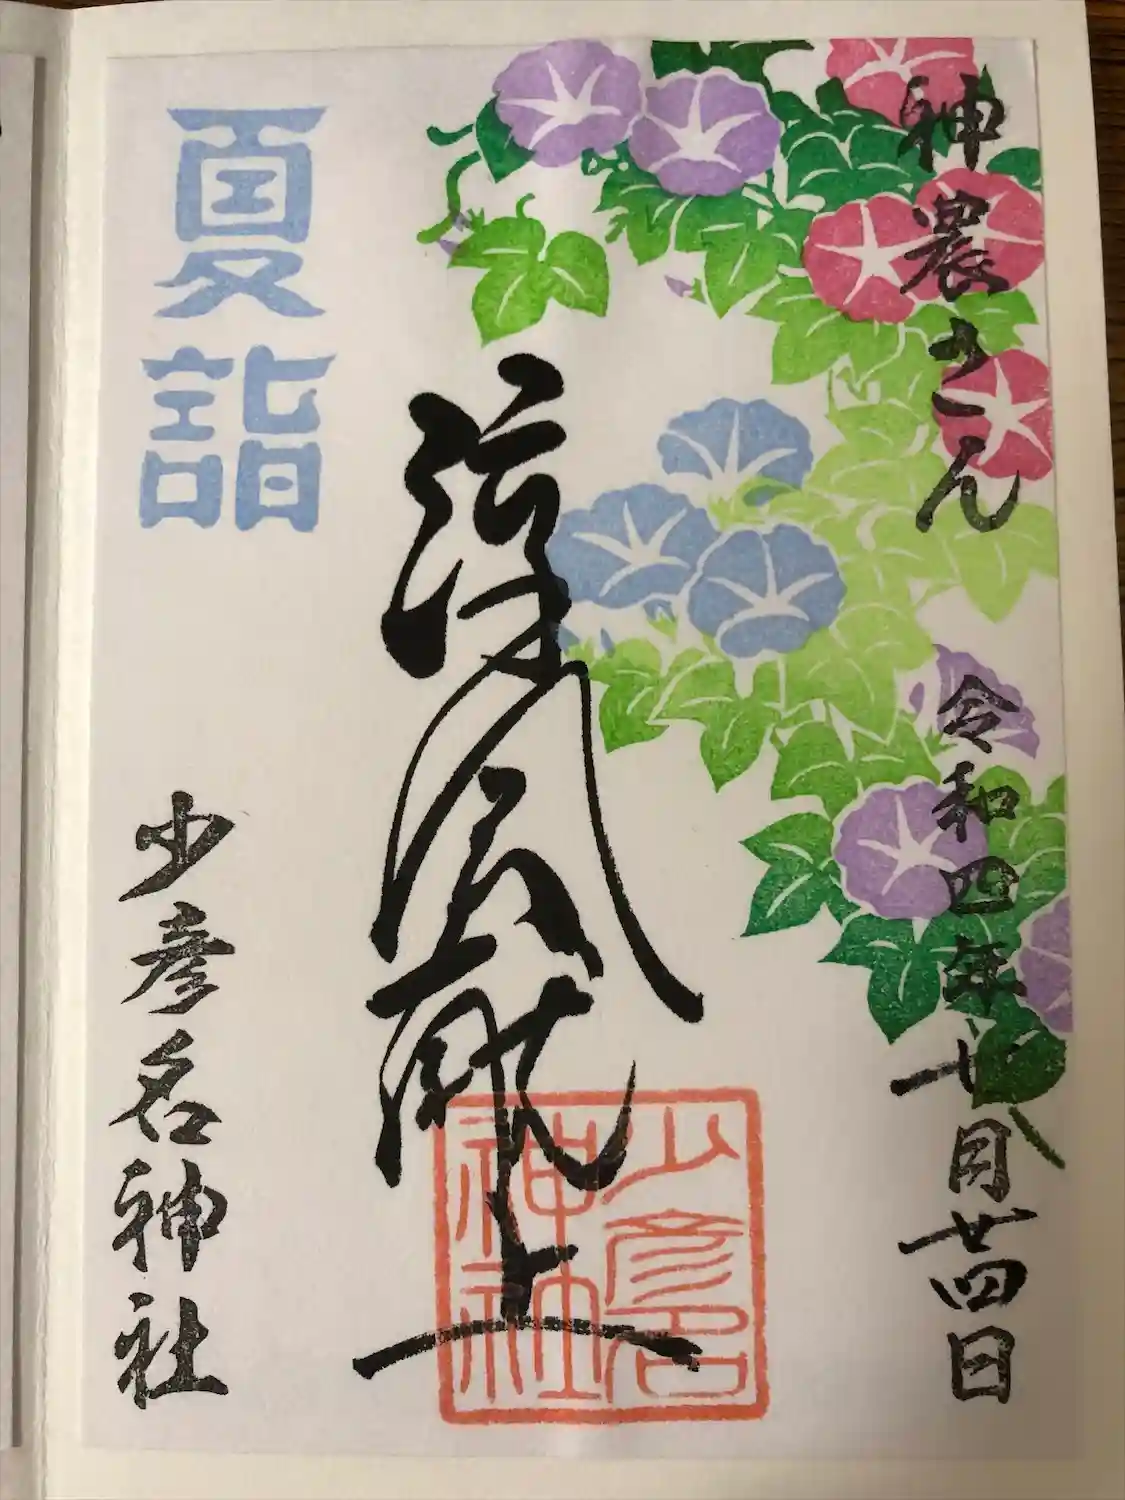 神農さん
令和四年七月廿四日
夏詣
少彦名神社
少彦名
神社